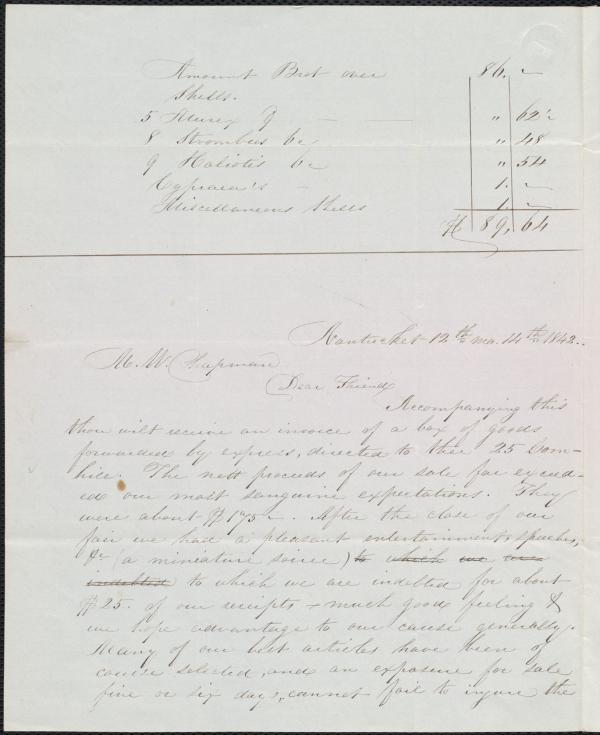 Amount Brot over 86. "
Shells.
5 Murex " 62½
8 Strombus 6c " 48
9 Haliotis 6c " 54
Cypraea's 1. "
Miscellaneous Shells 1. "
$ 89, 64
Nantucket 12th mo. 14th 1842.
M. W. Chapman
Dear Friend
Accompanying this
thou wilt receive an invoice of a box of goods
forwarded by express, directed to thee 25 Corn-
hill. The nett proceeds of our sale far exceed-
ed our most sanguine expectations. They
were about $175. After the close of our
fair we had a pleasant entertainment, speeches,
&c (a miniature soiree) to which we are
indebted to which we are indebted for about
$25. of our receipts + much good feeling &
we hope advantage to our cause generally.
Many of our best articles have been of
course selected, and an exposure for sale
five or six days, cannot fail to injure the